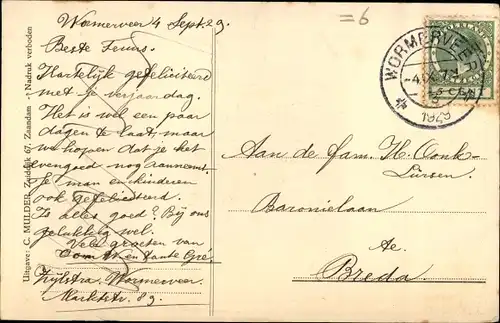 =6
Wormerveer 4 Sept. 29.
Beste Teuns.
Hartelijk gefeliciteerd
met je verjaardag.
Het is wel een paar
dagen te laat, maar
we hopen dat je het
evengoed nog aanneemt.
Je man en kinderen
ook gefeliciteerd.
Is alles goed? Bij ons
gelukkig wel.
Vele groeten van
Oom W. en tante Gré.
Zijlstra. Wormerveer.
Marktstr. 89.
Uitgave: C. MULDER, Zuiddijk 67, Zaandam - Nadruk verboden
WORMERVEER
1929
CENT
Aan de fam. H. Oonk-
Lürsen.
Baronielaan
te
Breda.